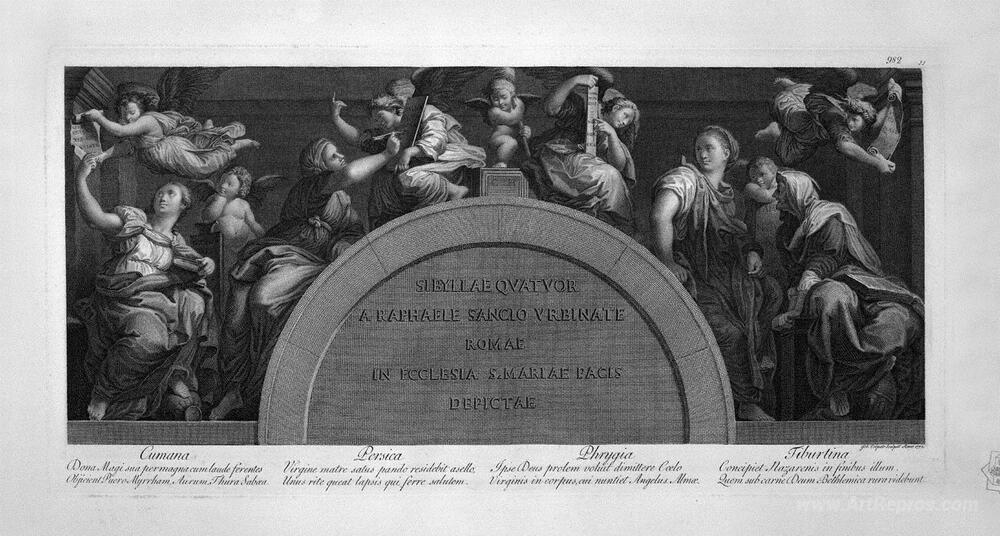 982
SIBYLLAE QVATVOR
A RAPHAELE SANCIO VRBINATE
ROMAE
IN ECCLESIA S. MARIAE PACIS
DEPICTAE
Cumana
Dona Magi sua permagna cum laude ferentes
Objicient Puero Myrrham, Aurum, Thura Sabæa.
Persica
Virgine matre satus pando residebit asello,
Unus rite queat lapsis qui ferre salutem.
Phrygia
Ipse Deus prolem voluit dimittere Cœlo
Virginis in corpus, cui nuntiet Angelus Almæ.
Tiburtina
Concipiet Nazarenis in finibus illum,
Quem sub carne Deum Bethlemica rura videbunt.
www.ArtRepros.com